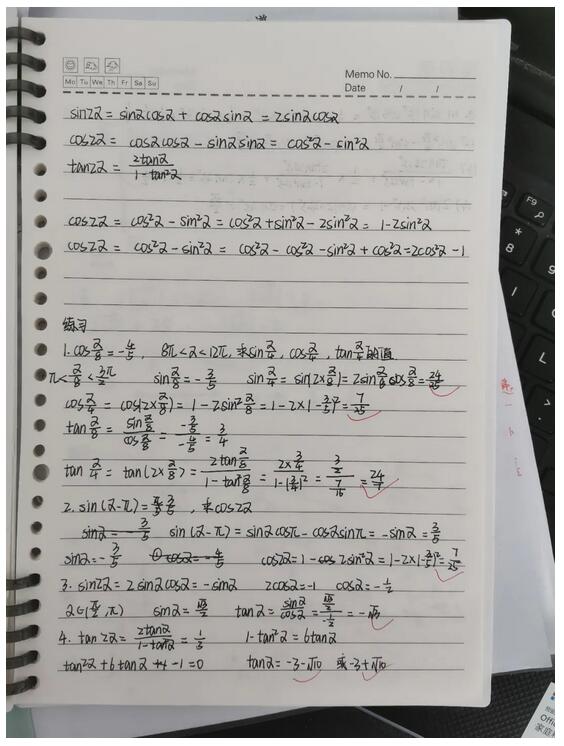 Memo No.
Mo Tu We Th Fr Sa Su
Date / /
sin2α = sinαcosα + cosαsinα = 2sinαcosα
cos2α = cosαcosα - sinαsinα = cos²α - sin²α
tan2α = 2tanα/(1-tan²α)
cos2α = cos²α - sin²α = cos²α + sin²α - 2sin²α = 1-2sin²α
cos2α = cos²α - sin²α = cos²α - cos²α - sin²α + cos²α = 2cos²α - 1
练习
1. cos α/8 = -4/5, 8π<α<12π, 求sin α/4, cos α/4, tan α/4 的值
π< α/8 < 3/2π sin α/8 = -3/5 sin α/4 = sin(2× α/8) = 2sin α/8 cos α/8 = 24/25
cos α/4 = cos(2× α/8) = 1-2sin² α/8 = 1-2×(-3/5)² = 7/25
tan α/8 = (sin α/8)/(cos α/8) = (-3/5)/(-4/5) = 3/4
tan α/4 = tan(2× α/8) = (2tan α/8)/(1-tan² α/8) = (2× 3/4)/(1-(3/4)²) = (3/2)/(7/16) = 24/7
2. sin(α-π) = 3/5, 求cos2α
sinα = -3/5 sin(α-π) = sinαcosπ - cosαsinπ = -sinα = 3/5
sinα = -3/5 ① cosα = -4/5 cos2α = 1-2sin²α = 1-2×(-3/5)² = 7/25
3. sin2α = 2sinαcosα = -sinα 2cosα = -1 cosα = -1/2
α∈(π/2, π) sinα = √3/2 tanα = sinα/cosα = (√3/2)/(-1/2) = -√3
4. tan2α = 2tanα/(1-tan²α) = 1/3 1-tan²α = 6tanα
tan²α + 6tanα -1 = 0 tanα = -3-√10 或 -3+√10
F9
8